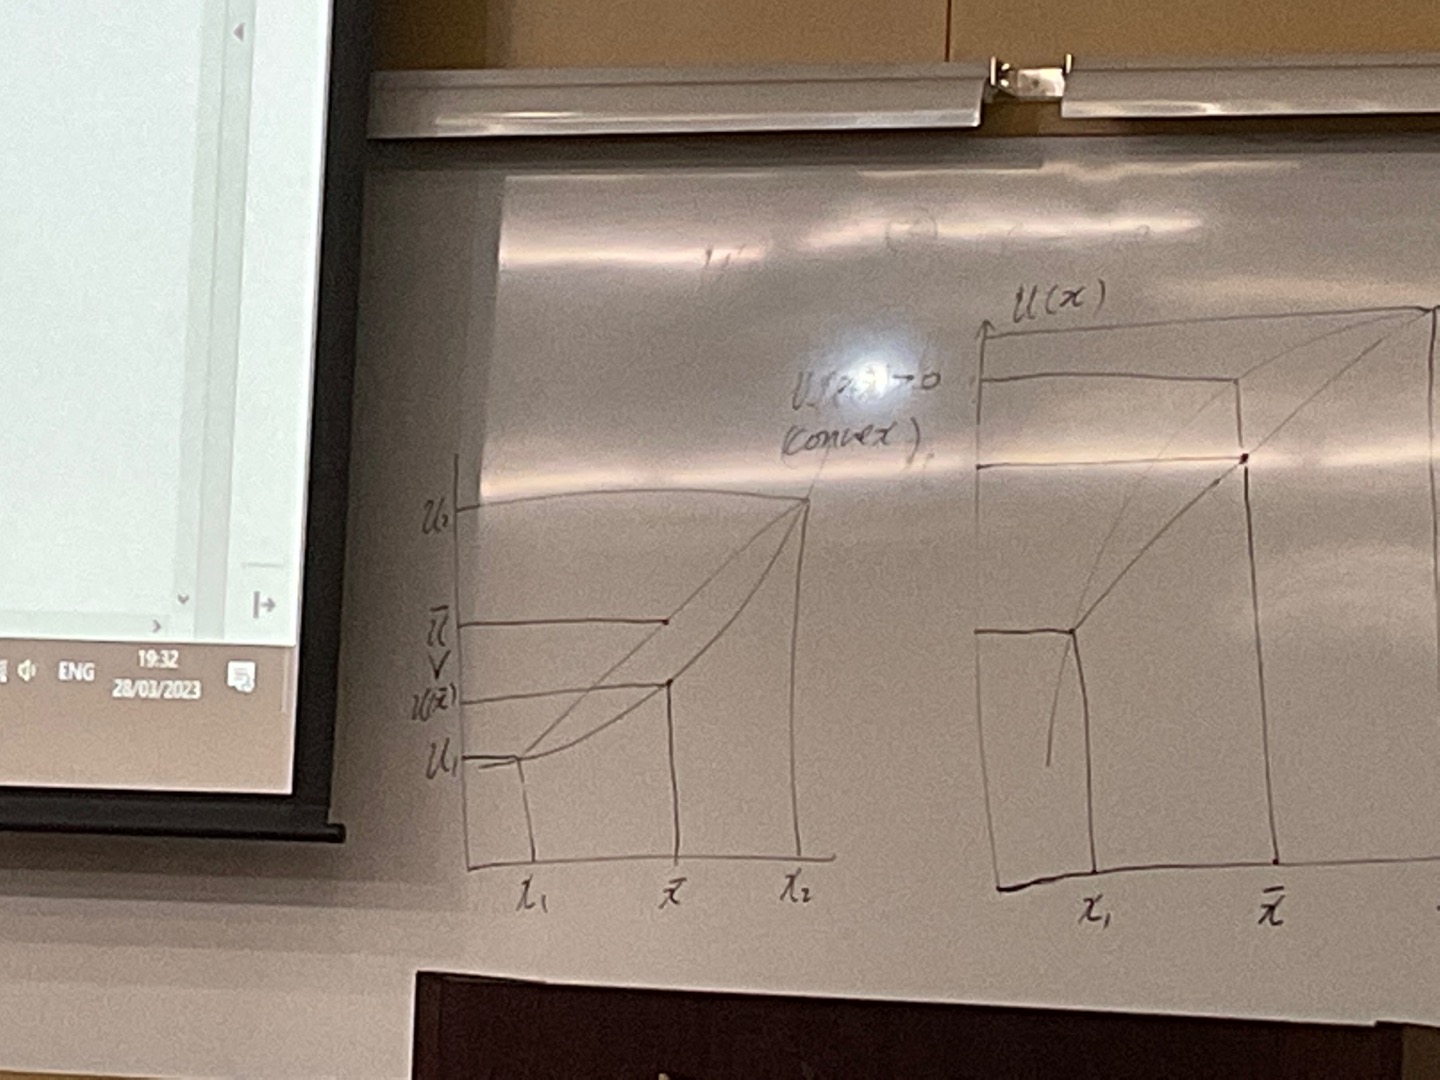 ENG
19:32
28/03/2023
(convex)
U₂
ū
V
u(x̄)
U₁
x₁
x̄
x₂
U(x)
x₁
x̄